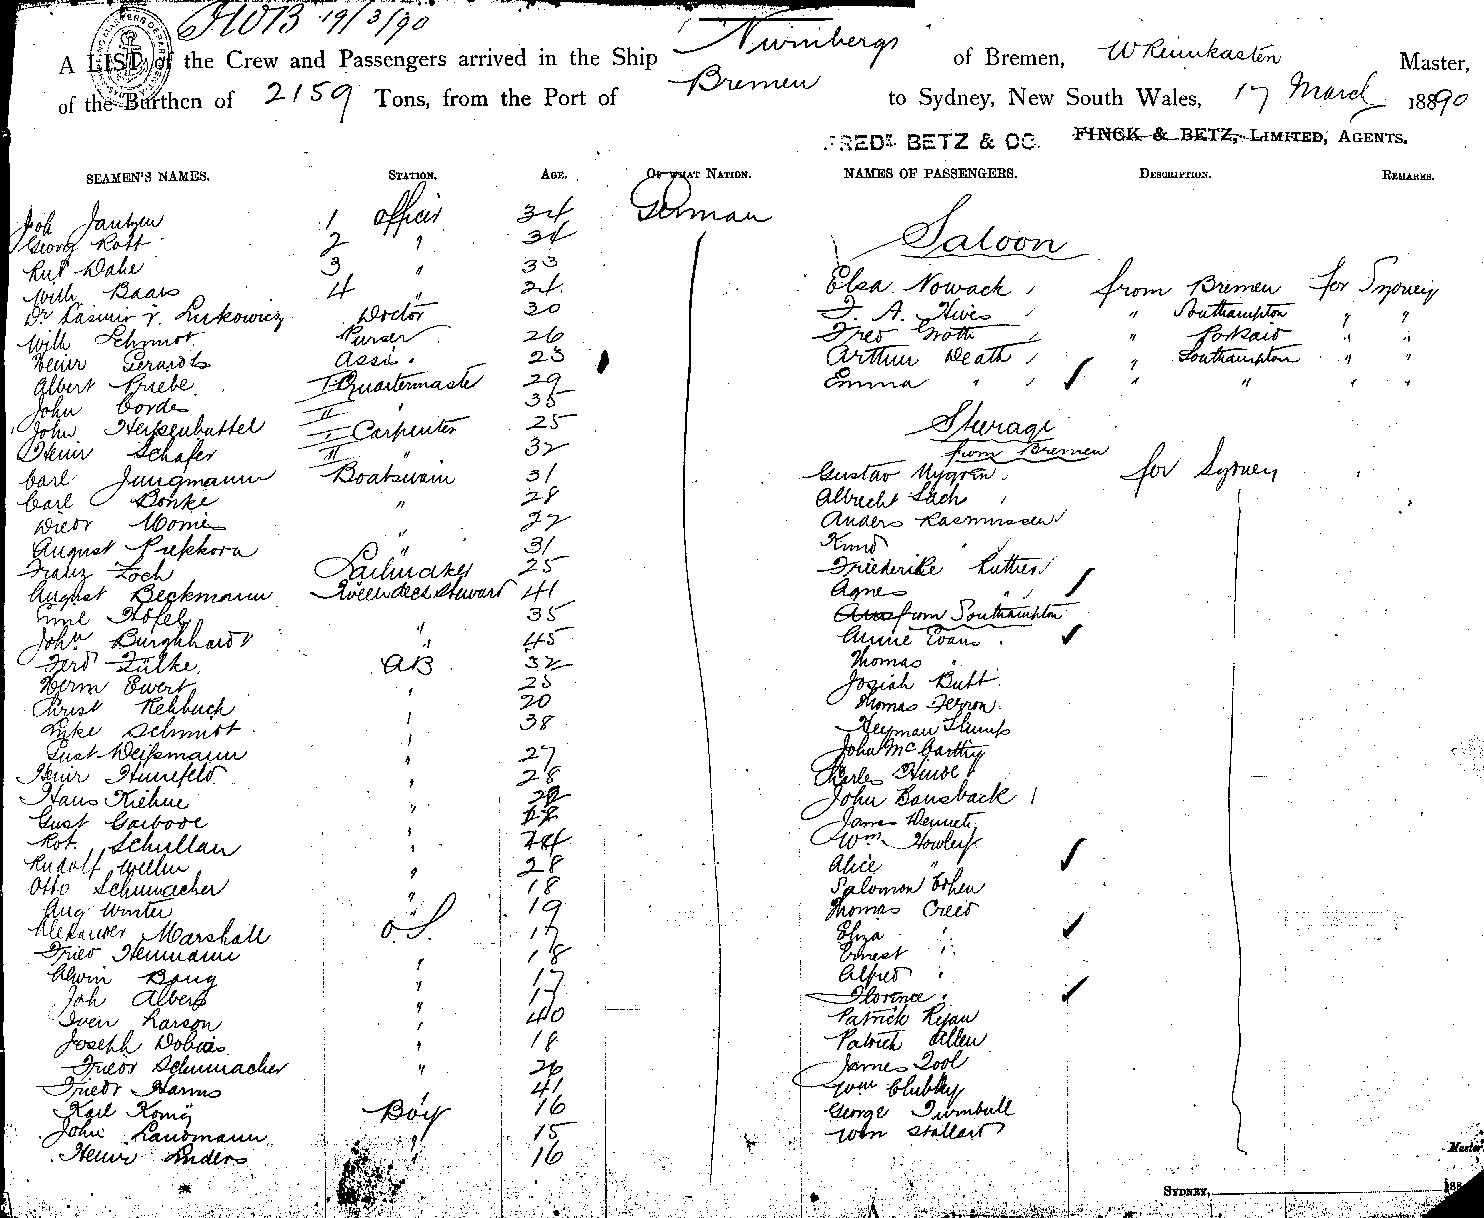 19/3/90
A LIST of the Crew and Passengers arrived in the Ship Nürnberg of Bremen, Master,
of the Burthen of 2159 Tons, from the Port of Bremen to Sydney, New South Wales, 17 March 1890
FREDK BETZ & CO. FINCK & BETZ, LIMITED, AGENTS.
SEAMEN'S NAMES. STATION. AGE. OF WHAT NATION. NAMES OF PASSENGERS. DESCRIPTION. REMARKS.
Joh Jantzen 1 officer 34 German
Georg Rott 2 " 34
Saloon
Dahe 3 " 33
Wilh Baars 4 " 24 Elsa Nowack from Bremen for Sydney
Dr Casimir v. Lukowicz Doctor 30 F. A. Hives " Southampton " "
Wilh Schmidt Purser 26 Fred " Portsaid " "
Heinr Gerards Assi. 23 Arthur Death " Southampton " "
Albert Priebe I Quartermaster 29 Emma " " " " "
John Cordes II " 35
John Heissenbuttel I Carpenter 25 Sterage
Heinr Schafer II " 32 from Bremen
Carl Jungmann Boatswain 31 Gustav for Sydney
Carl Bonke " 28 Albrecht Lach
Diedr " 22 Anders Rasmussen
August Prepkorn " 31 Knud "
Franz Zoch Sailmaker 25 Friederike
August Beckmann Steward 41 Agnes "
Emil Höfel " 35 from Southampton
John Burghhardt " 45 Annie Evans
Ferd Fülke AB 32 Thomas "
Herm Ewert " 25 Josiah Butt
Christ Rehbuch " 20 Thomas
Schmidt " 38 Heyman
Gust Weissmann " 27 John McCarthy
Heinr Hunefeld " 28 Charles
Hans Kiehne " John Bansback
Gust " James Dennett
Rob. Schullan " Wm Howley
Rudolf " 28 Alice "
Otto Schumacher " 18 Salomon Cohen
Aug Winter " 19 Thomas Creed
Alexander Marshall O.S. 17 Eliza "
Fried Heinmann " 18 Ernest "
Alwin Baug " 17 Alfred "
Joh Albers " 17 Florence "
Iven Larson " 40 Patrick Ryan
Joseph " 18 Patrick Allen
Friedr Schumacher " 26 James Tool
Friedr Harms 41 Wm Clubby
Karl König Boy 16 George Turnbull
John Landmann " 15 Wm Stallard
Heinr Enders " 16
Master
SYDNEY, 188